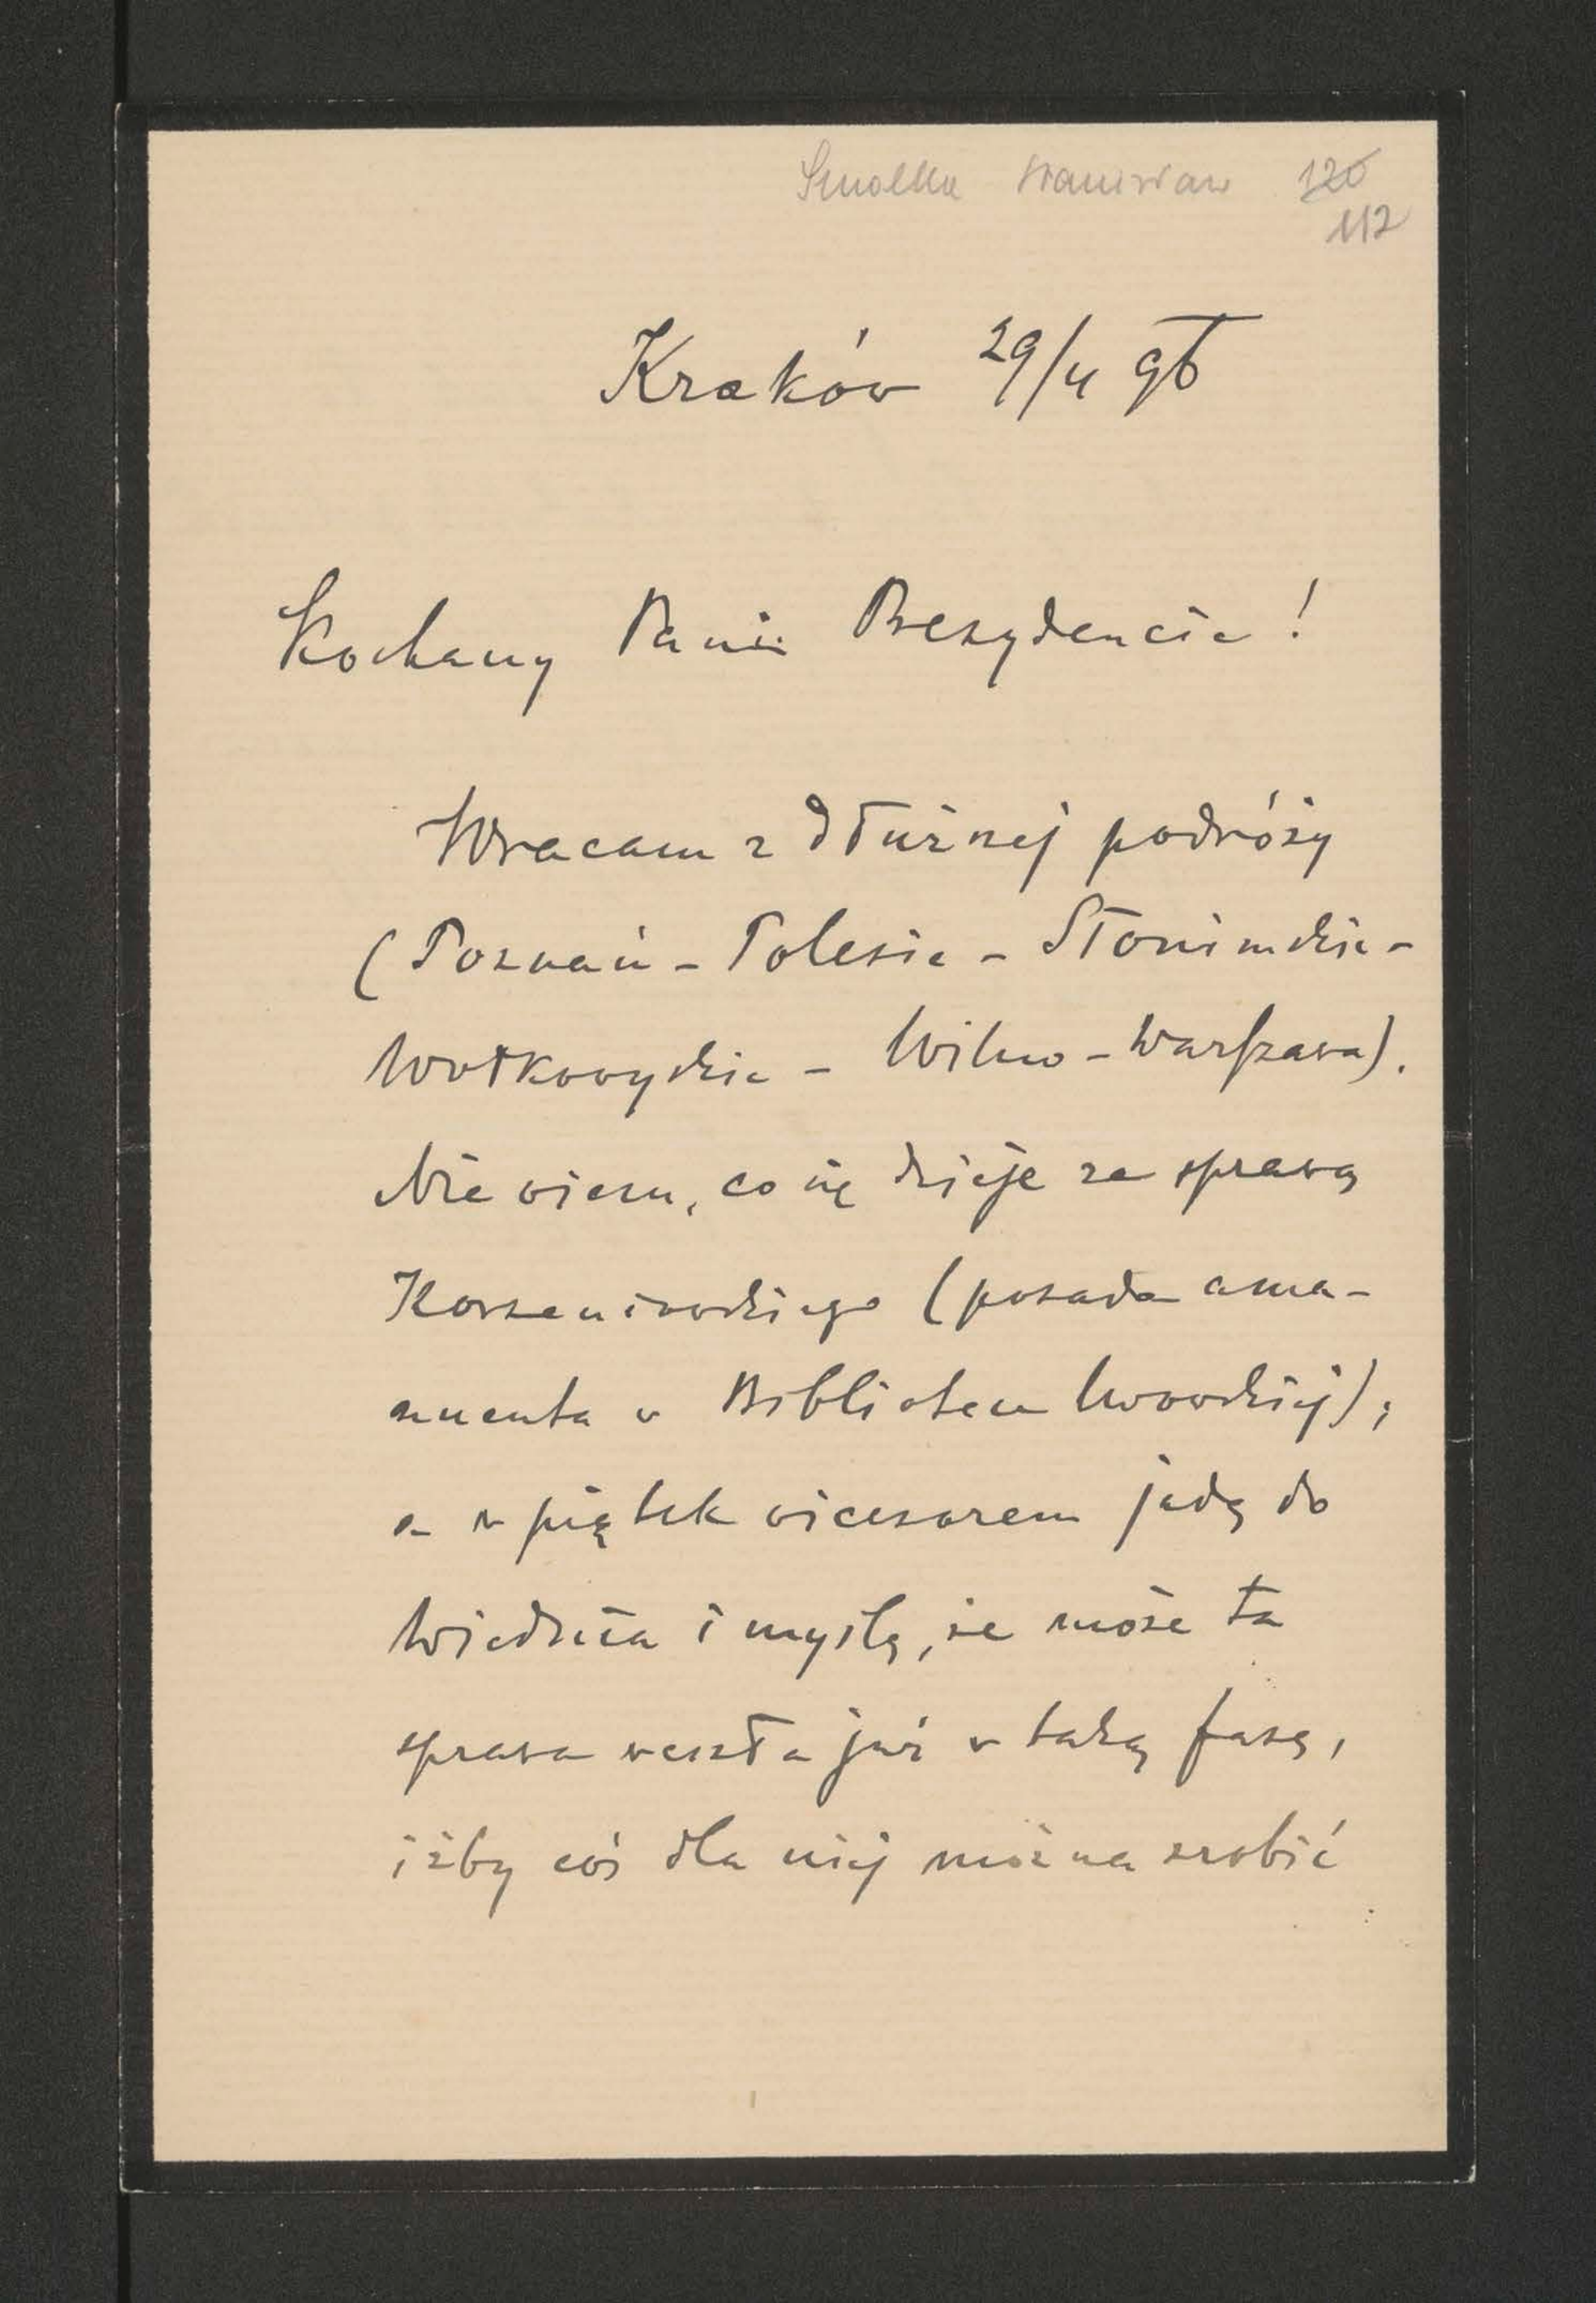 Smolka Stanisław 126
112
Kraków 29/4 96
Kochany Panie Prezydencie!
Wracam z dłuższej podróży
(Poznań - Polesie - Słonimskie -
Wołkowyskie - Wilno - Warszawa).
Nie wiem, co się dzieje ze sprawą
Korzeniowskiego (posada ama-
nuenta w Bibliotece lwowskiej);
a w piątek wieczorem jadę do
Wiednia i myślę, że może ta
sprawa weszła już w taką fazę,
iżby coś dla niej można zrobić